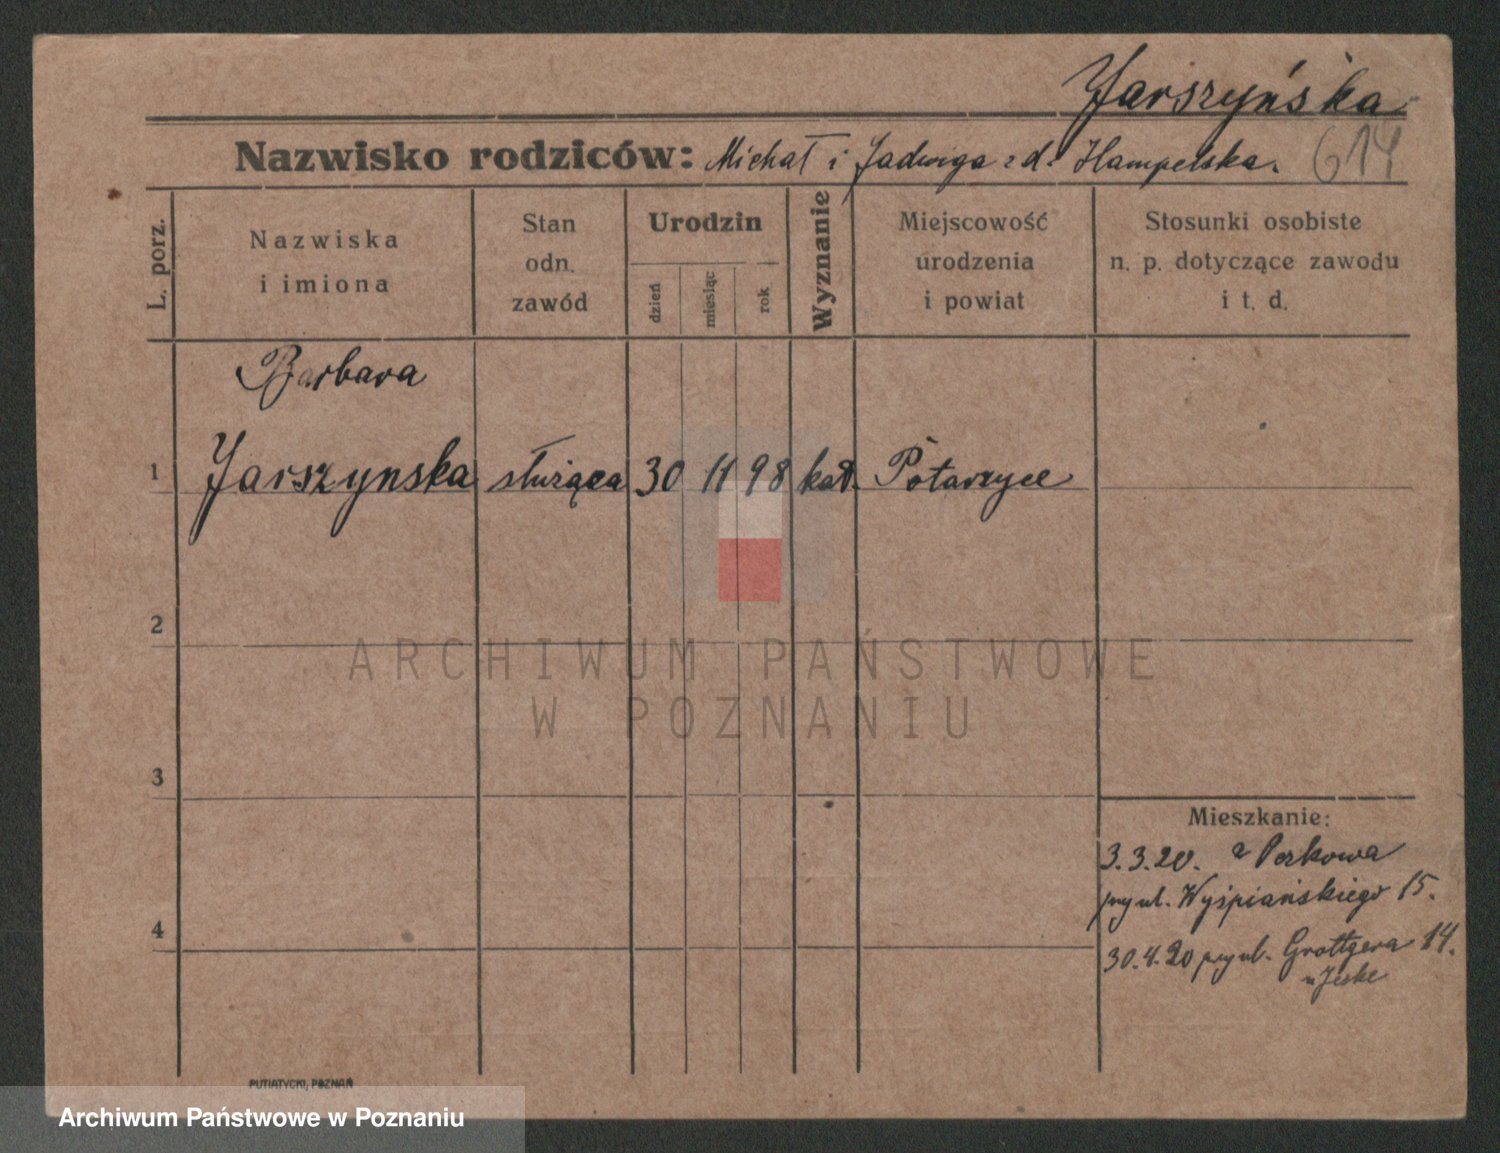 Jarszyńska
Nazwisko rodziców: Michał i Jadwiga z d. Hampelska.
614
L. porz.
Nazwiska
i imiona
Stan
odn.
zawód
Urodzin
dzień
miesiąc
rok
Wyznanie
Miejscowość
urodzenia
i powiat
Stosunki osobiste
n. p. dotyczące zawodu
i t. d.
Barbara
1 Jarszynska służąca 30 11 98 kat. Potarzyce
2
3
4
ARCHIWUM PAŃSTWOWE
W POZNANIU
Mieszkanie:
3.3.20. z Perkowa
przy ul. Wyśpiańskiego 15.
30.4.20 przy ul. Grottgera 14.
u Jeske
PUTIATYCKI, POZNAŃ
Archiwum Państwowe w Poznaniu